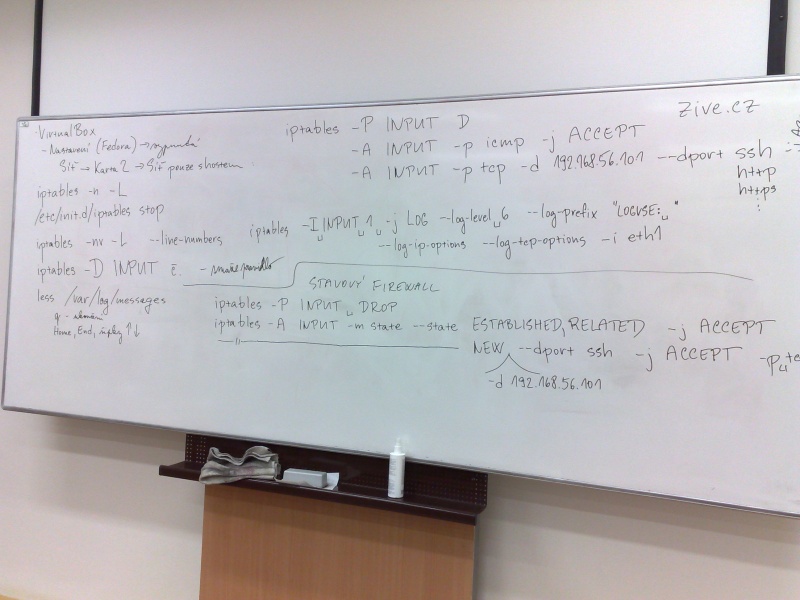 VirtualBox
- Nastavení (Fedora) → vypnutá
Síť → Karta 2 → Síť pouze s hostem
iptables -n -L
/etc/init.d/iptables stop
iptables -nv -L --line-numbers
iptables -D INPUT č. -
less /var/log/messages
q -
Home, End, šipky ↑↓
zive.cz
iptables -P INPUT D
-A INPUT -p icmp -j ACCEPT
-A INPUT -p tcp -d 192.168.56.101 --dport ssh
http
https
:
iptables -I␣INPUT␣1 -j LOG --log-level␣6 --log-prefix "LOGVSE:␣"
--log-ip-options --log-tcp-options -i eth1
STAVOVÝ FIREWALL
iptables -P INPUT␣DROP
iptables -A INPUT -m state --state ESTABLISHED,RELATED -j ACCEPT
-"- NEW --dport ssh -j ACCEPT -p␣tc
-d 192.168.56.101